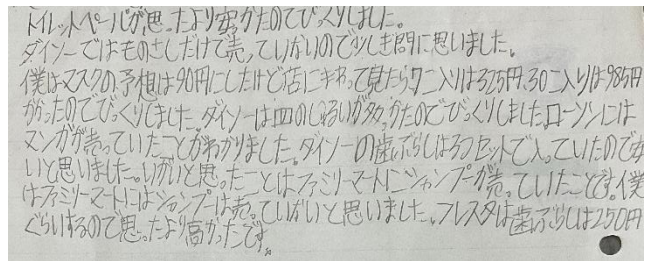 トイレットペーパが思ったより安かたのでびくりしました。
ダイソーではものさしだけで売っていかいので少しき問に思いました。
僕はマスクの予想は90円にしたけど店にまわって見たら7こ入りは325円、30こ入りは985円
がったのでびっくりしました。ダイソーは皿のしゅるいが多かたのでびっくりしました。ローソンには
マンガが売っていたことがわかりました。ダイソーの歯ぶらしは3つセットで入っていたので安
いと思いました。いがいと思ったことはファミリーマートにジャンプが売っていたことです。僕
はファミリーマートにはジャンプは売っていがいと思いました。フレスタは歯ぶらしは250円
ぐらいするので思ったより高かったです。